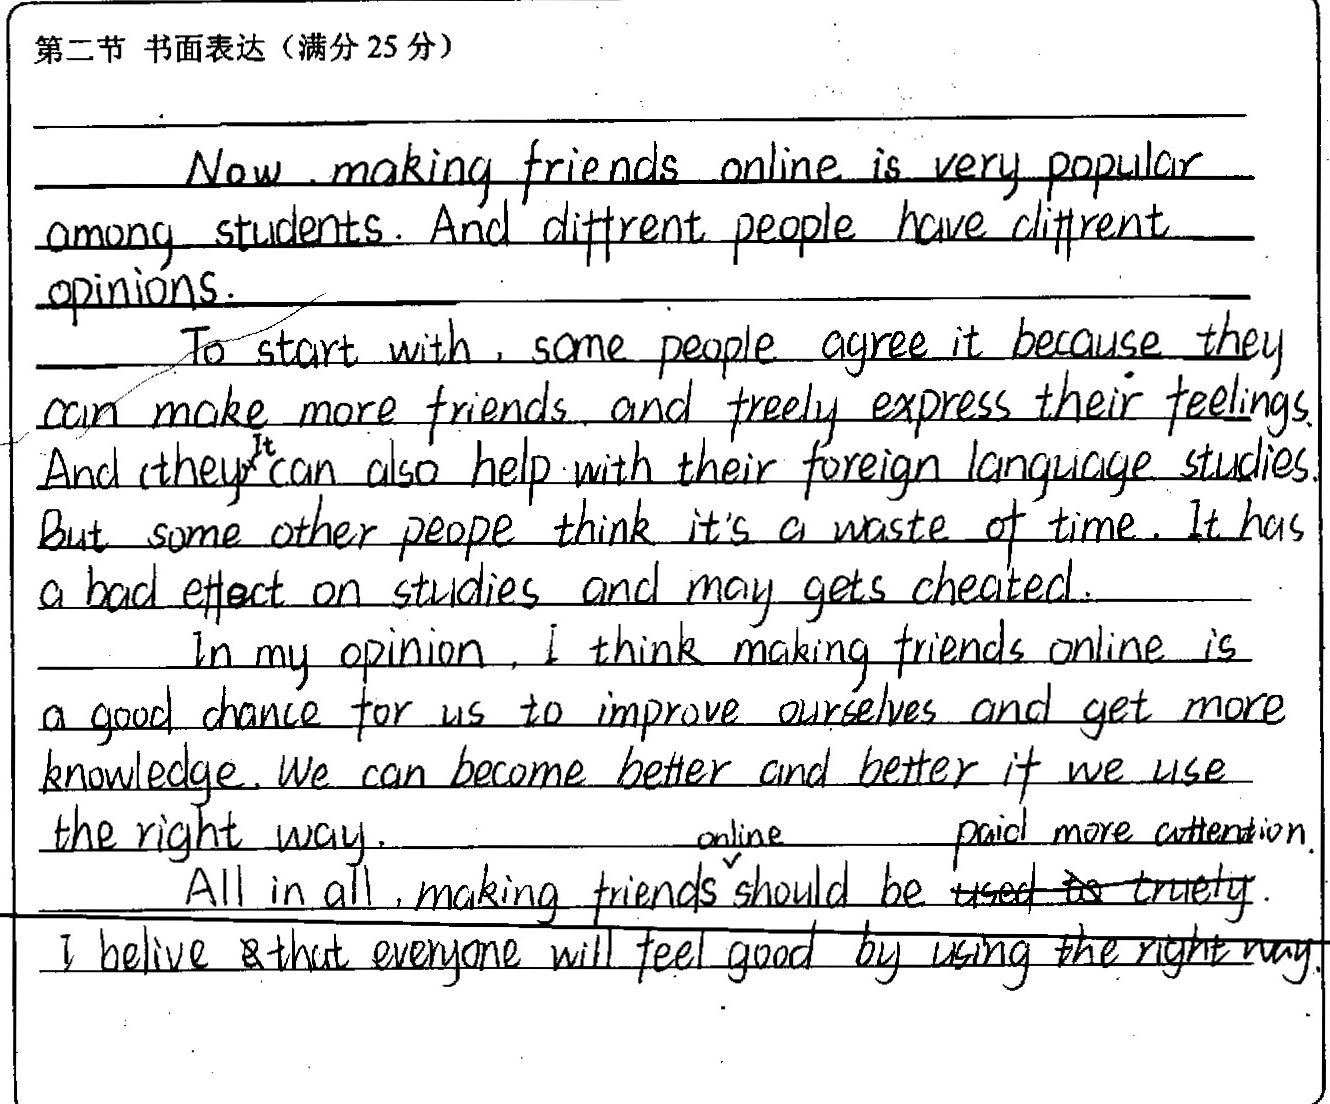 第二节 书面表达（满分 25 分）
Now, making friends online is very popular
among students. And diffrent people have diffrent
opinions.
To start with, some people agree it because they
can make more friends and freely express their feelings.
And (they It can also help with their foreign language studies.
But some other peope think it's a waste of time. It has
a bad effect on studies and may gets cheated.
In my opinion, I think making friends online is
a good chance for us to improve ourselves and get more
knowledge. We can become better and better if we use
the right way.
All in all, making friends online should be paid more attention.
I belive that everyone will feel good by using the right way.